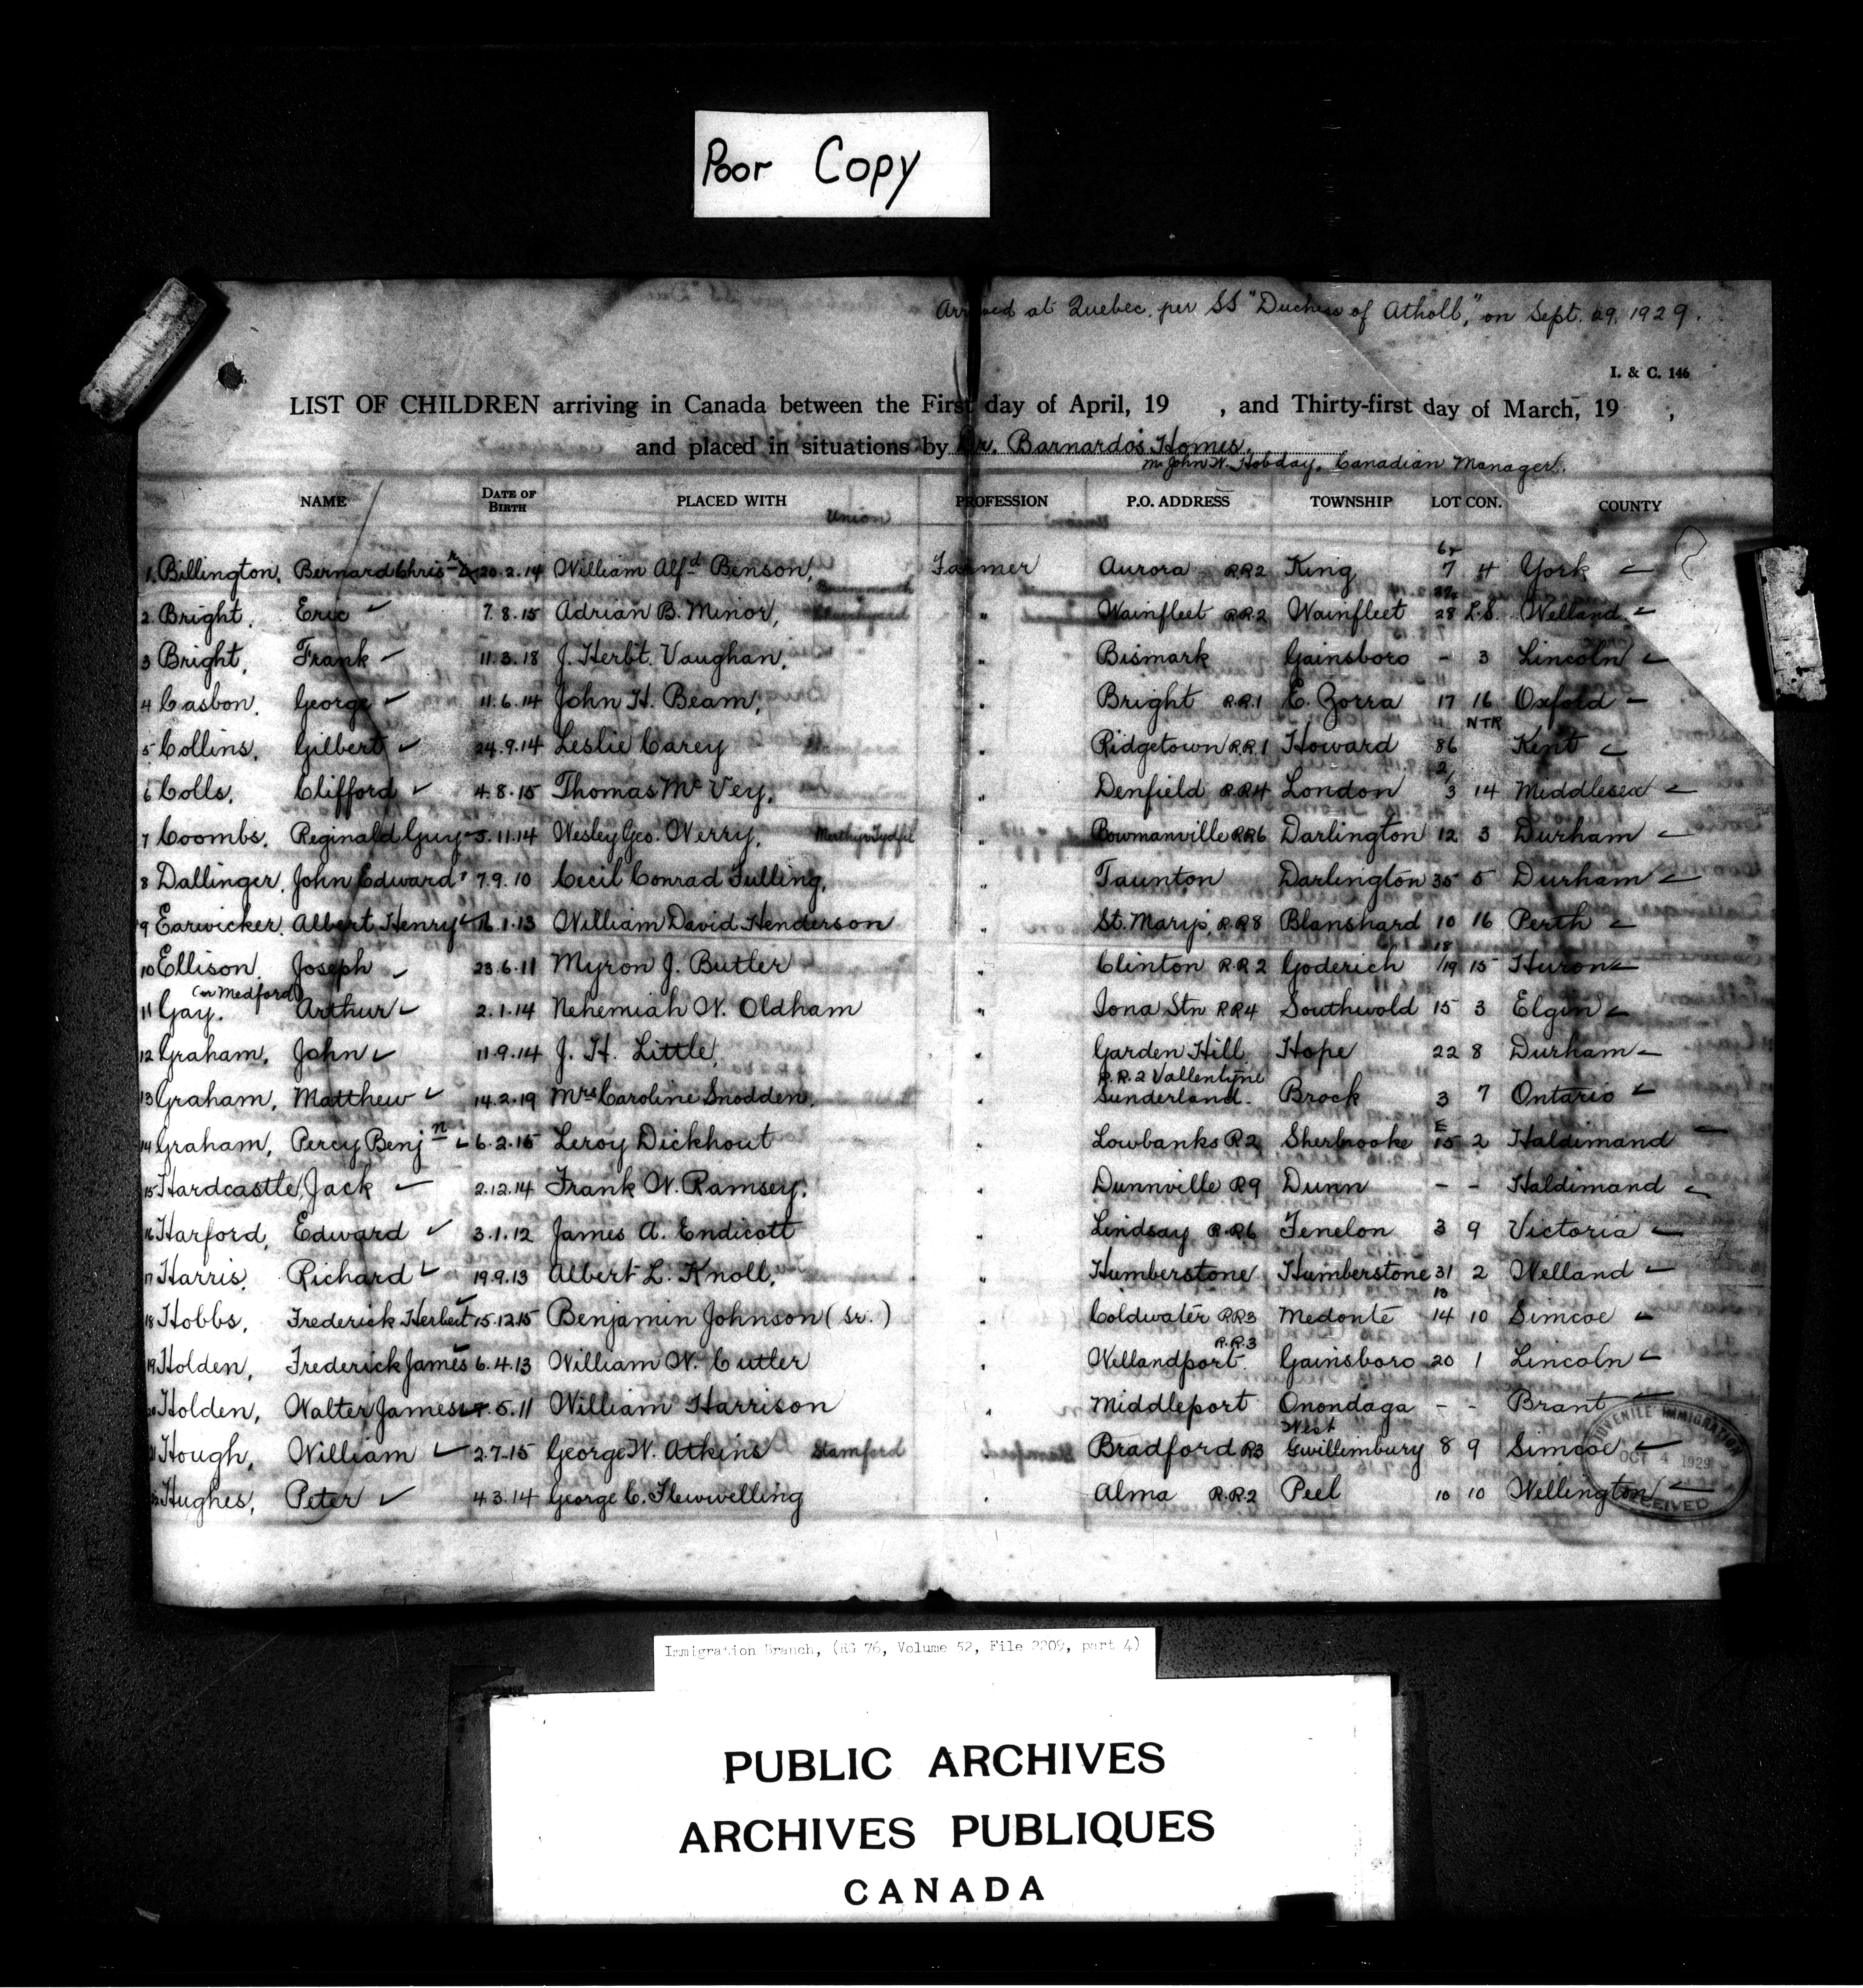 Poor Copy
Arrived at Quebec, per SS "Duchess of Atholl," on Sept. 29, 1929.
I. & C. 146
LIST OF CHILDREN arriving in Canada between the First day of April, 19 , and Thirty-first day of March, 19 ,
and placed in situations by Dr. Barnardo's Homes.
Mr John W. Hobday, Canadian Manager.
NAME DATE OF BIRTH PLACED WITH PROFESSION P.O. ADDRESS TOWNSHIP LOT CON. COUNTY
Union
1 Billington, Bernard Chris r 20.2.14 William Alfd Benson, Farmer Aurora RR2 King 6+ 7 4 York
Bournemouth
2 Bright, Eric 7.8.15 Adrian B. Minor, " Wainfleet RR2 Wainfleet 28 L.S. Welland
3 Bright, Frank 11.3.18 J. Herbt. Vaughan, " Bismark Gainsboro - 3 Lincoln
4 Casbon, George 11.6.14 John H. Beam, " Bright R.R.1 E. Zorra 17 16 Oxford
5 Collins, Gilbert 24.9.14 Leslie Carey " Ridgetown RR.1 Howard 86 NTR Kent
6 Colls, Clifford 4.8.15 Thomas McVey, " Denfield RR4 London 2/3 14 Middlesex
7 Coombs, Reginald Guy 5.11.14 Wesley Geo. Werry, Merthyr Tydfil " Bowmanville RR6 Darlington 12 3 Durham
8 Dallinger, John Edward 7.9.10 Cecil Conrad Fulling, " Taunton Darlington 35 5 Durham
9 Earwicker, Albert Henry 16.1.13 William David Henderson " St. Mary's, R.R8 Blanshard 10 16 Perth
10 Ellison, Joseph 23.6.11 Myron J. Butler " Clinton R.R 2 Goderich 18/19 15 Huron
(or Medford)
11 Gay, Arthur 2.1.14 Nehemiah W. Oldham " Iona Stn RR4 Southwold 15 3 Elgin
12 Graham, John 11.9.14 J. H. Little, " Garden Hill Hope 22 8 Durham
R.R.2 Vallentyne
13 Graham, Matthew 14.2.19 Mrs Caroline Snodden, " Sunderland. Brock 3 7 Ontario
14 Graham, Percy Benjn 6.2.15 Leroy Dickhout " Lowbanks R2 Sherbrooke E 15 2 Haldimand
15 Hardcastle, Jack 2.12.14 Frank W. Ramsey. " Dunnville R9 Dunn - - Haldimand
16 Harford, Edward 3.1.12 James A. Endicott " Lindsay R.R6 Fenelon 3 9 Victoria
17 Harris, Richard 19.9.13 Albert L. Knoll, " Humberstone Humberstone 31 2 Welland
18 Hobbs, Frederick Herbert 15.12.15 Benjamin Johnson (Sr.) " Coldwater RR3 Medonte 13 14 10 Simcoe
R.R.3
19 Holden, Frederick James 6.4.13 William W. Cutler " Wellandport. Gainsboro 20 1 Lincoln
20 Holden, Walter James 5.11 William Harrison " Middleport Onondaga - - Brant
21 Hough, William 2.7.15 George W. Atkins Stamford " Bradford R3 West Gwillimbury 8 9 Simcoe
22 Hughes, Peter 4.3.14 George C. Flewwelling " Alma R.R.2 Peel 10 10 Wellington
JUVENILE IMMIGRATION
OCT 4 1929
RECEIVED
Immigration Branch, (RG 76, Volume 52, File 2209, part 4)
PUBLIC ARCHIVES
ARCHIVES PUBLIQUES
CANADA